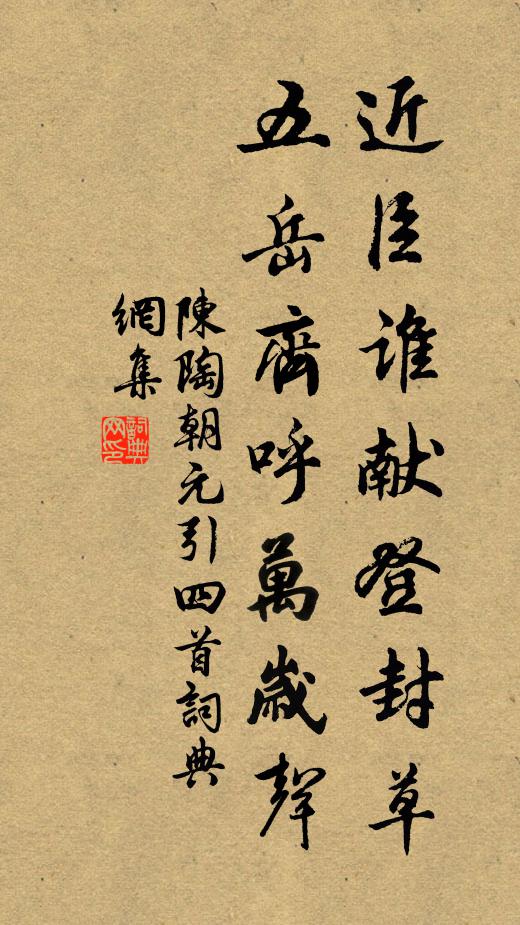 近臣谁献登封草
五岳齊呼萬歲聲
陳陶朝元引四首詞典
網集
詞典
网印